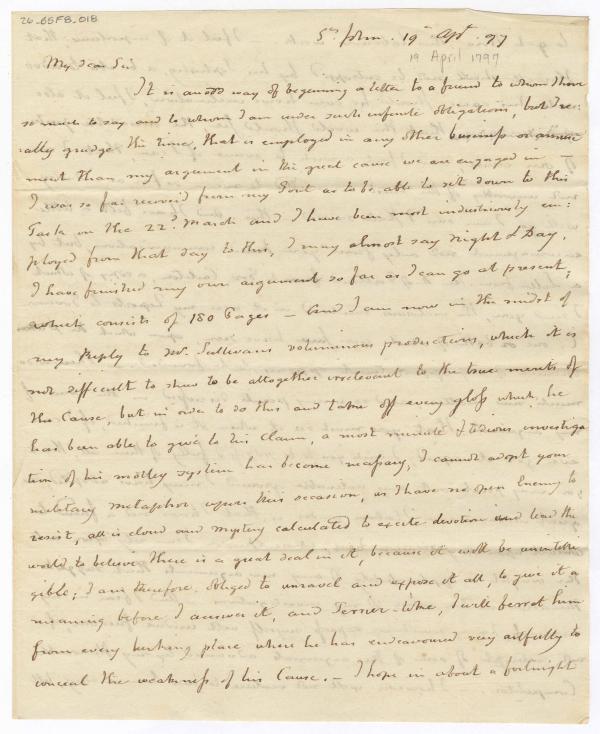 26.65FB.018
St John. 19th Apl. 97
19 April 1797
My dear Sir
It is an odd way of beginning a letter to a friend to whom I have
so much to say and to whom I am under such infinite obligations, but I re:
:ally grudge the time, that is employed in any other business or amuse
ment than my argument in the great cause we are engaged in
I was so far recover'd from my Gout as to be able to set down to this
Task on the 22d March and I have been most industriously em:
ployed from that day to this, I may almost say Night & Day,
I have finished my own argument so far as I can go at present,
which consists of 180 Pages — And I am now in the midst of
my Reply to Mr. Sullivans voluminous productions, which it is
not difficult to shew to be altogether irrelevant to the true merits of
the Cause, but in order to do this and take off every gloss which he
has been able to give to his Claim, a most minute & tedious investiga
tion of his motley system has become necessary, I cannot adopt your
military metaphor upon this occasion, as I have no open Enemy to
resist, all is cloud and mystery calculated to excite devotion and lead the
world to believe there is a great deal in it, because it will be unintelli
gible; I am therefore obliged to unravel and expose it all, to give it a
meaning before I answer it, and Terrier-like, I will ferret him
from every lurking place where he has endeavoured very artfully to
conceal the weakness of his Cause. — I hope in about a fortnight